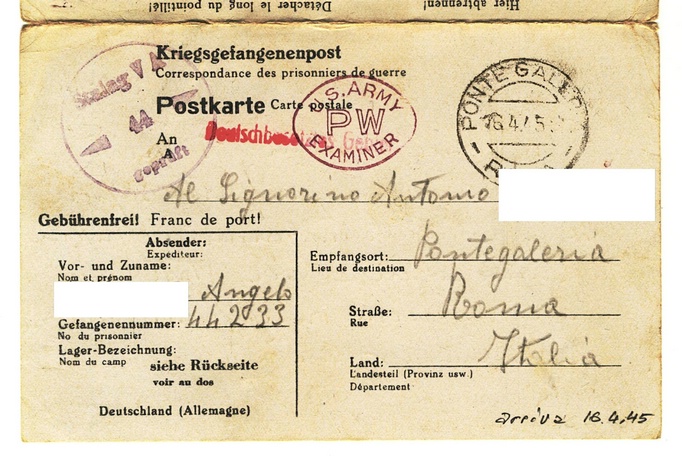 Détacher le long du pointillé!
Hier abtrennen!
Kriegsgefangenenpost
Correspondance des prisonniers de guerre
Postkarte Carte postale
Stalag V A
44
geprüft
U.S. ARMY
PW
EXAMINER
PONTE GALERIA
16.4.45
An
A
Al Signorino Antonio
Gebührenfrei! Franc de port!
Absender:
Expéditeur:
Vor- und Zuname:
Nom et prénom
Angelo
Gefangenennummer: 44233
No du prisonnier
Lager-Bezeichnung:
Nom du camp
siehe Rückseite
voir au dos
Deutschland (Allemagne)
Empfangsort: Pontegaleria
Lieu de destination
Straße: Roma
Rue
Land: Italia
Landesteil (Provinz usw.)
Département
arriva 16.4.45